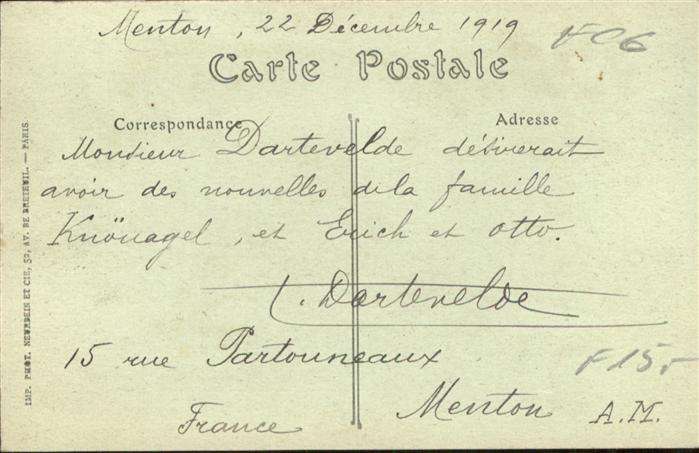 Menton, 22 Décembre 1919
F06
Carte Postale
Correspondance
Adresse
Monsieur Dartevelde désirerait
avoir des nouvelles de la famille
Knöuagel, et Erich et Otto.
C. Dartevelde
15 rue Partouneaux
F15-
Menton A.M.
France
IMP. PHOT. NEURDEIN ET CIE, 52, AV. DE BRETEUIL. — PARIS.